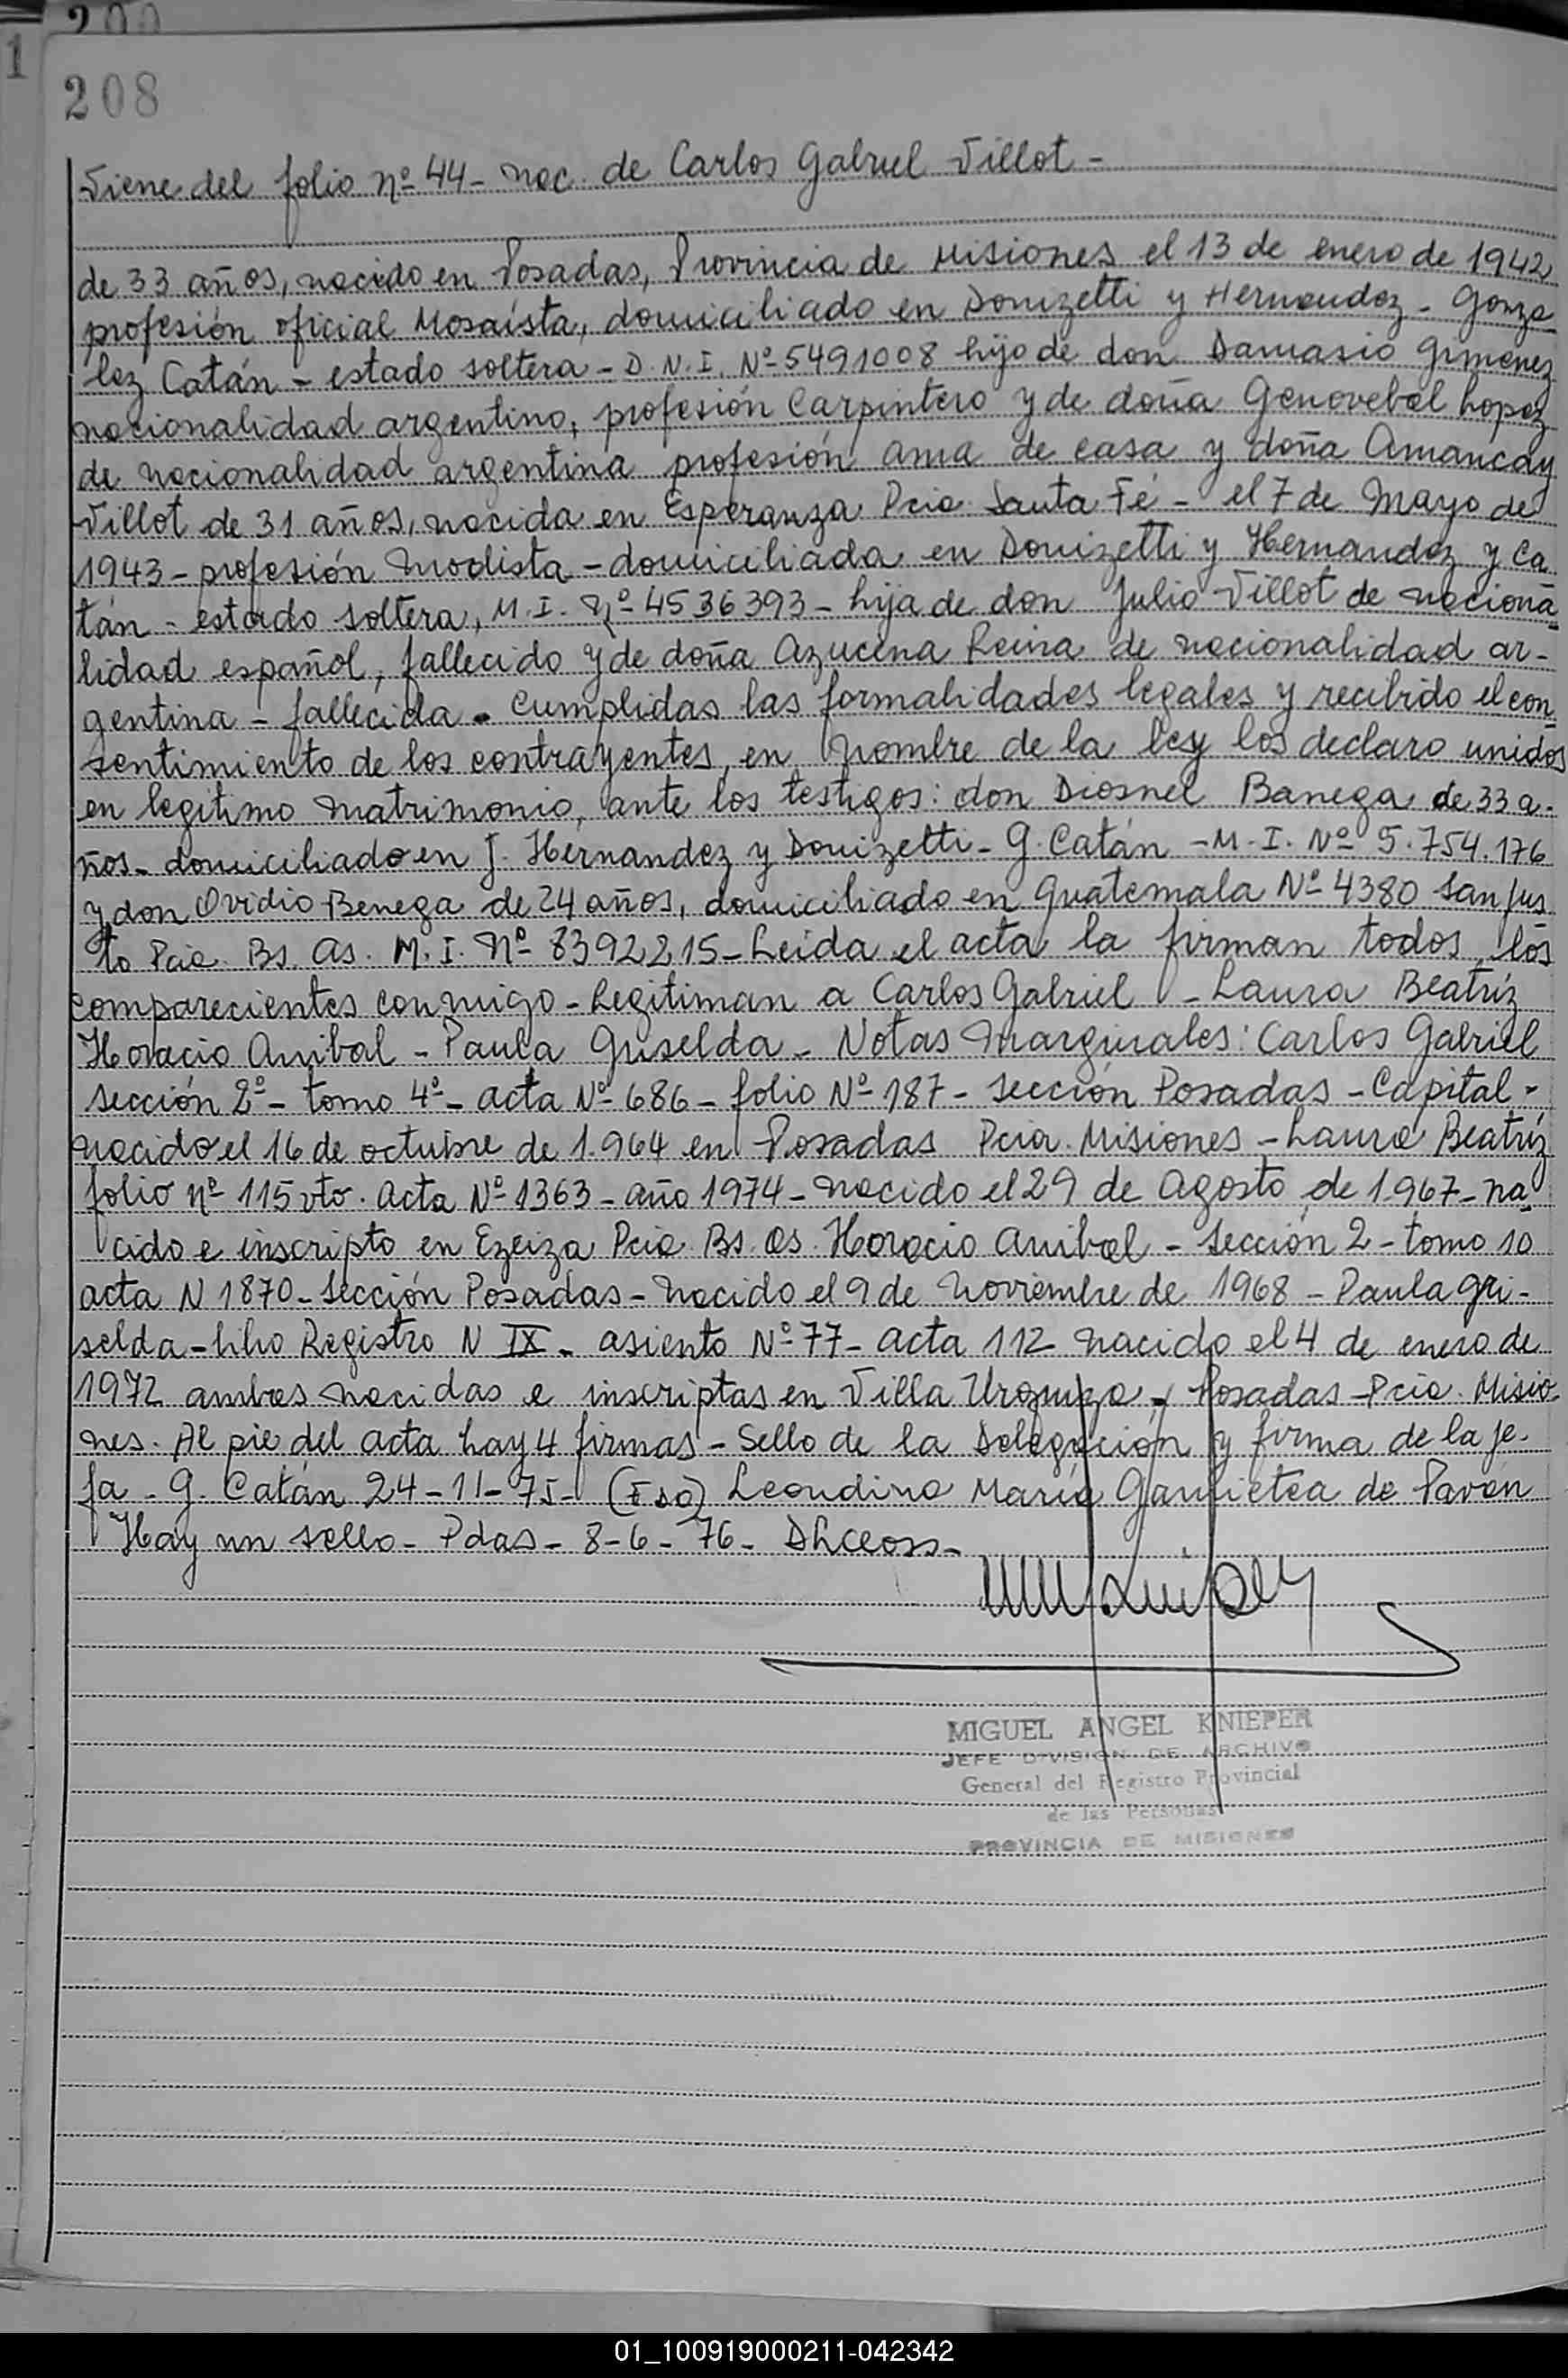 200
1
208
Viene del folio nº 44 - nac. de Carlos Gabriel Villot -
de 33 años, nacido en Posadas, Provincia de Misiones el 13 de enero de 1942
profesión oficial Mosaísta, domiciliado en Donizetti y Hernandez - Gonza
lez Catán - estado soltera - D.N.I. Nº 5491008 hijo de don Damasio Gimenez
nacionalidad argentino, profesión Carpintero y de doña Genovebal Lopez
de nacionalidad argentina profesión ama de casa y doña Amancay
Villot de 31 años, nacida en Esperanza Pcia Santa Fé - el 7 de Mayo de
1943 - profesión Modista - domiciliada en Donizetti y Hernandez y Ca
tán - estado soltera, M.I. Nº 4536393 - hija de don Julio Villot de naciona
lidad español, fallecido y de doña Azucena Reina de nacionalidad ar-
gentina - fallecida. Cumplidas las formalidades legales y recibido el con
sentimiento de los contrayentes, en nombre de la ley los declaro unidos
en legitimo matrimonio, ante los testigos: don Diosnel Banega de 33 a-
ños - domiciliado en J. Hernandez y Donizetti - G. Catán - M.I. Nº 5.754.176
y don Ovidio Benega de 24 años, domiciliado en Guatemala Nº 4380 San Jus
to Pcia. Bs. As. M.I. Nº 8392215 - Leida el acta la firman todos los
comparecientes conmigo - Legitiman a Carlos Gabriel - Laura Beatríz
Horacio Anibal - Paula Griselda - Notas Marginales: Carlos Gabriel
sección 2º - tomo 4º - acta Nº 686 - folio Nº 187 - sección Posadas - Capital -
nacido el 16 de octubre de 1.964 en Posadas Pcia. Misiones - Laura Beatríz
folio nº 115 vto. Acta Nº 1363 - año 1974 - nacido el 29 de Agosto de 1.967 - na
cido e inscripto en Ezeiza Pcia Bs. As. Horacio Anibal - Sección 2 - tomo 10
acta N 1870 - Sección Posadas - nacido el 9 de Noviembre de 1968 - Paula Gri-
selda - Libro Registro N IX - asiento Nº 77 - acta 112 nacido el 4 de enero de
1972 ambas nacidas e inscriptas en Villa Urquiza, Posadas - Pcia. Misio
nes. Al pie del acta hay 4 firmas - Sello de la Delegación y firma de la Je-
fa - G. Catán 24-11-75 - (Fdo) Leondina María de Pavón
Hay un sello - Pdas - 8-6-76 -
MIGUEL ANGEL KNIEPER
JEFE DIVISION DE ARCHIVO
General del Registro Provincial
de las Personas
PROVINCIA DE MISIONES
01_100919000211-042342